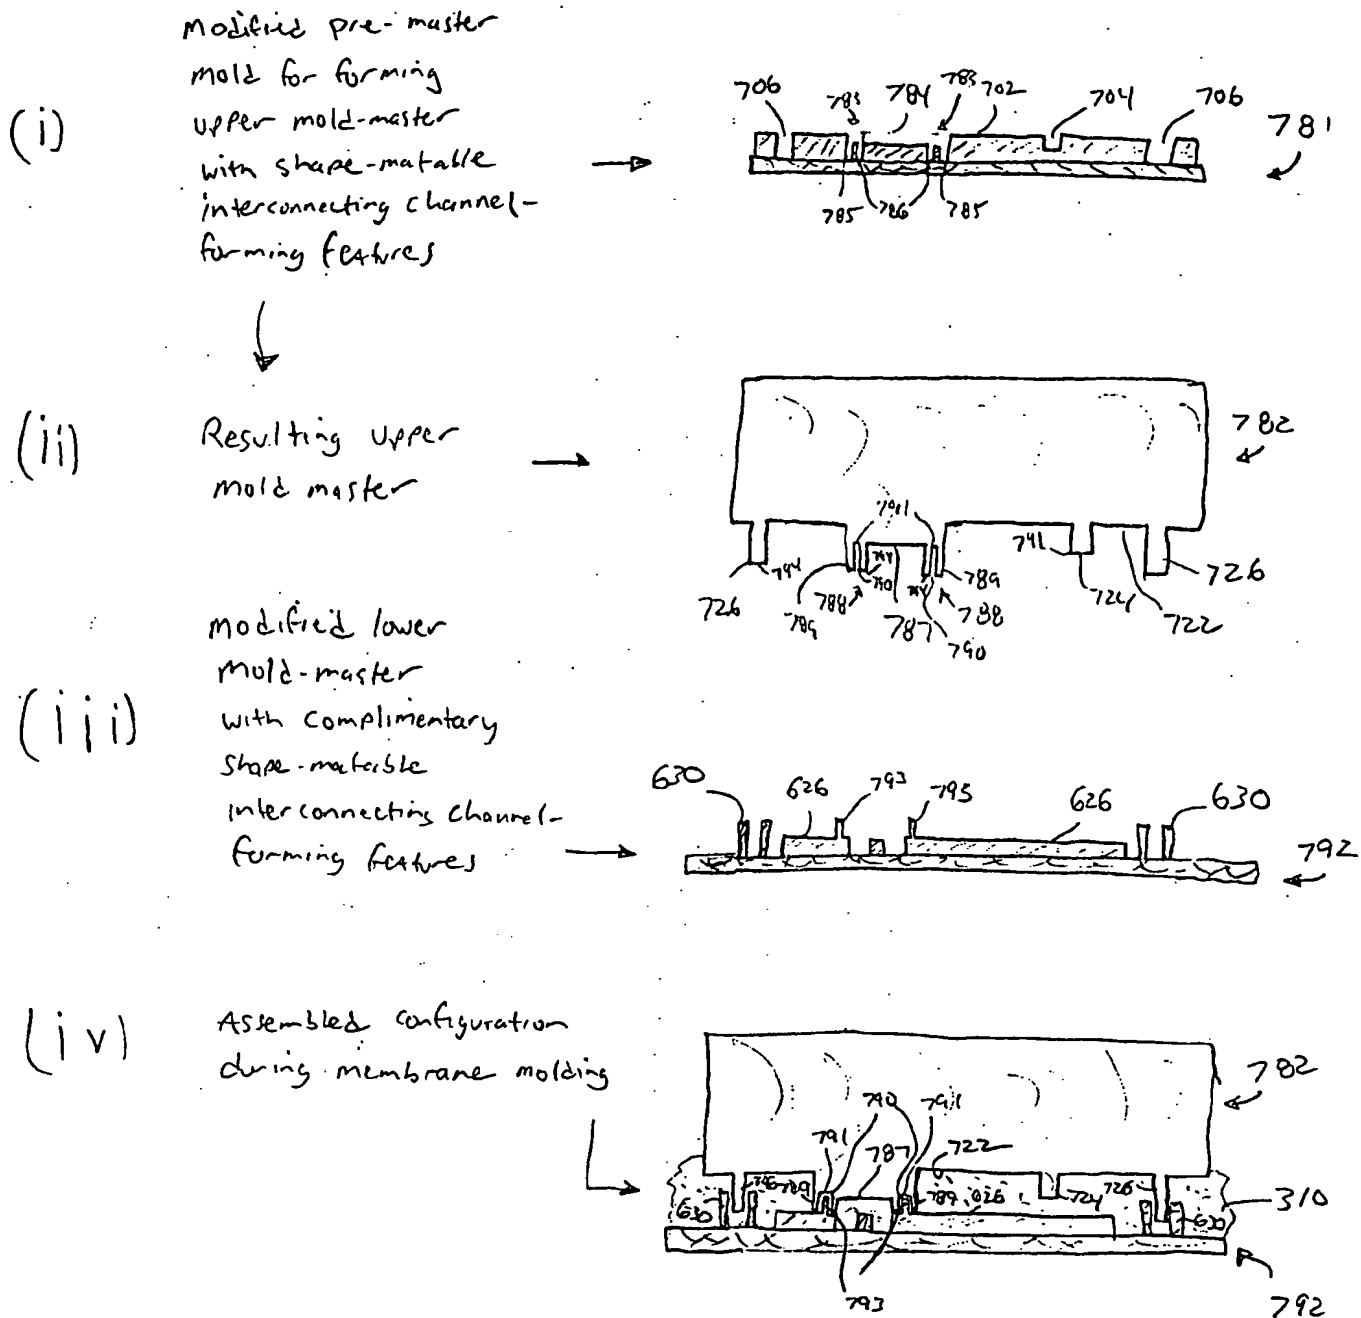 Modified pre-master
mold for forming
(i)
upper mold-master
with shape-matable
interconnecting channel-
forming features
706
783
784
783
702
704
706
781
785
786
785
(ii)
Resulting Upper
mold master
782
791
794
741
726
789
788
790
794
787
794
790
788
789
724
722
726
(iii)
Modified lower
Mold-master
with complimentary
shape-matable
interconnecting channel-
forming features
630
626
793
793
626
630
792
(iv)
Assembled configuration
during membrane molding
782
791
790
787
791
722
630
726
789
789
626
724
726
630
310
793
792